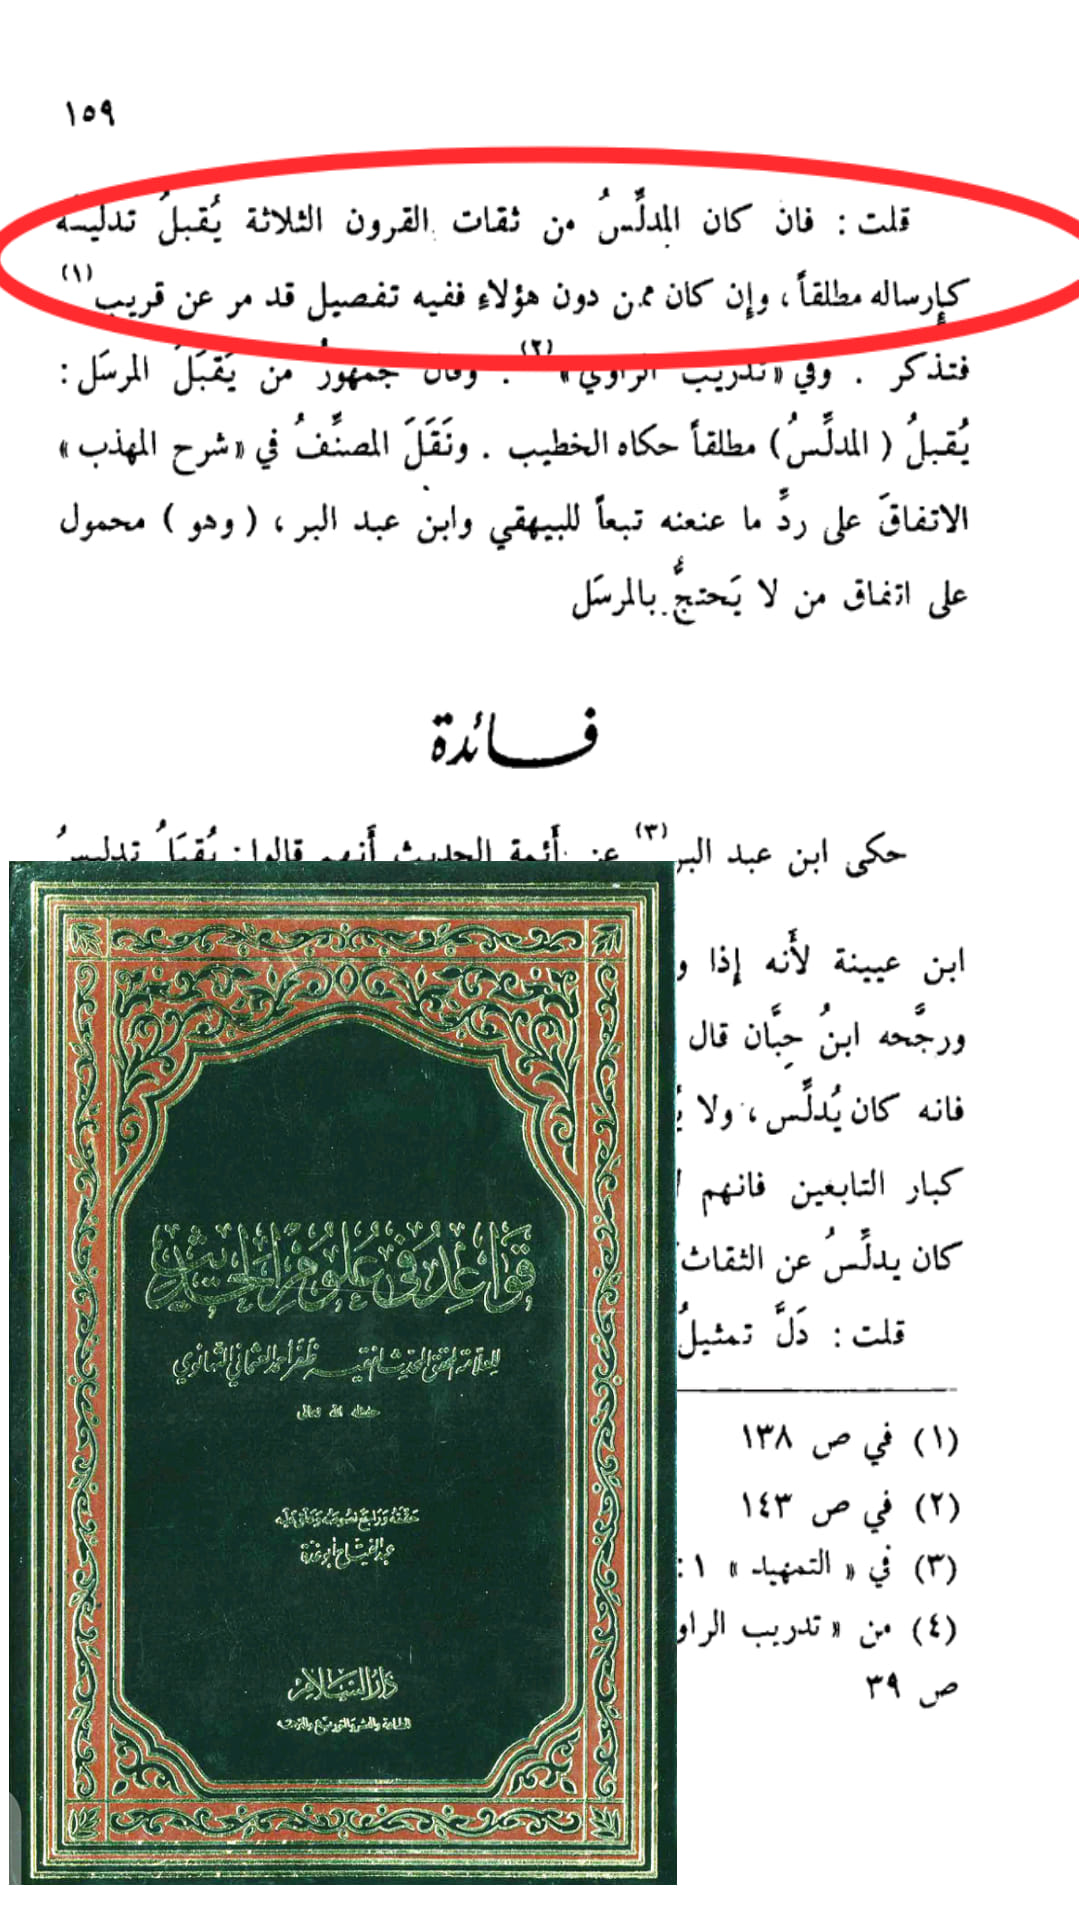 ١٥٩
قلت : فان كان المدلِّسُ من ثقات القرون الثلاثة يُقبلُ تدليسُه
كإرساله مطلقاً ، وإن كان ممن دون هؤلاءِ ففيه تفصيل قد مر عن قريب (١)
فتذكر . وفي « تدريب الراوي » (٢) . وقال جمهورُ من يَقبَلَ المرسَل :
يُقبلُ ( المدلِّسُ ) مطلقاً حكاه الخطيب . ونَقَلَ المصنِّفُ في « شرح المهذب »
الاتفاقَ على ردِّ ما عنعنه تبعاً للبيهقي وابن عبد البر ، ( وهو ) محمول
على اتفاق من لا يَحتجُّ بالمرسَل
فائدة
حكى ابن عبد البر (٣) عن أَئمة الحديث أَنهم قالوا : يُقبَلُ تدليسُ
ابن عيينة لأَنه إذا و
ورجَّحه ابنُ حِبَّان قال
فانه كان يُدلِّس ، ولا
كبار التابعين فانهم
كان يدلِّسُ عن الثقات
قلت : دَلَّ تمثيلُ
(١) في ص ١٣٨
(٢) في ص ١٤٣
(٣) في « التمهيد » ١ :
(٤) من « تدريب الراو
ص ٣٩
قواعد في علوم الحديث
للعلامة المحقق المحدث الفقيه ظفر أحمد العثماني التهانوي
حفظه الله تعالى
حققه وراجع نصوصه وعلق عليه
عبد الفتاح أبو غدة
دار السلام
للطباعة والنشر والتوزيع والترجمة